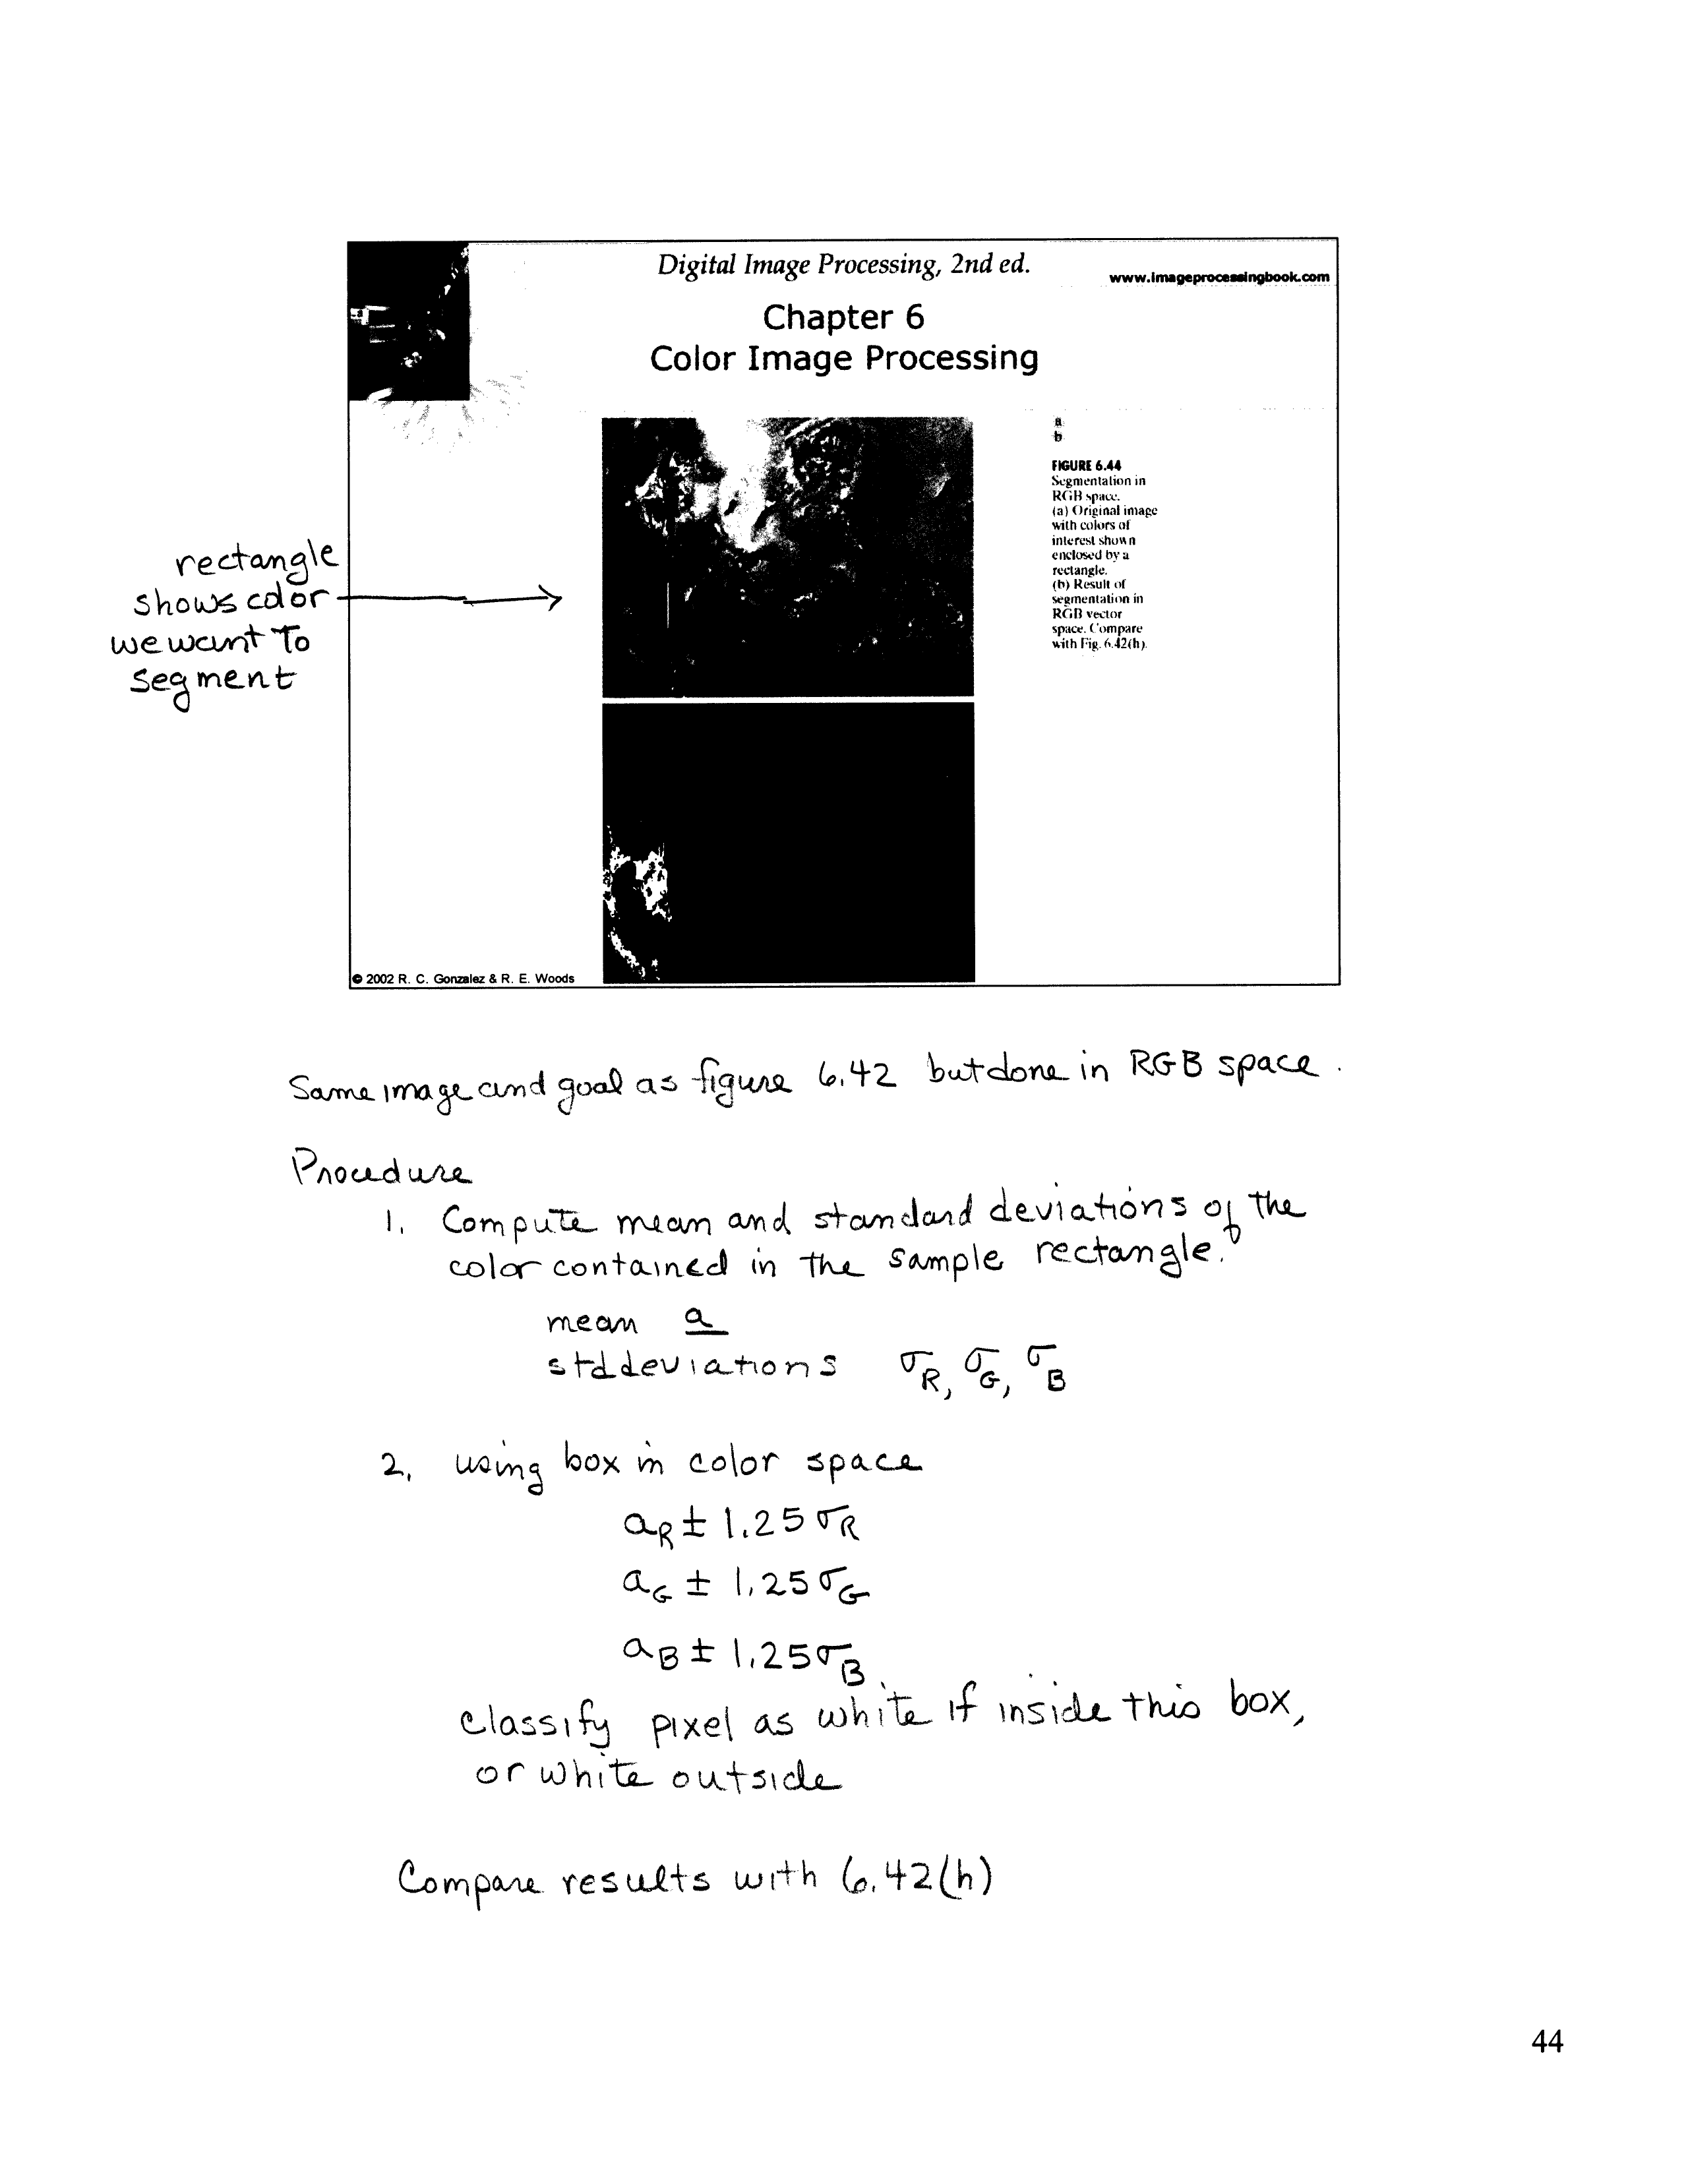 Digital Image Processing, 2nd ed.
www.imageprocessingbook.com
Chapter 6
Color Image Processing
a
b
FIGURE 6.44
Segmentation in
RGB space.
(a) Original image
with colors of
interest shown
enclosed by a
rectangle.
(b) Result of
segmentation in
RGB vector
space. Compare
with Fig. 6.42(h).
rectangle
shows color
we want to
segment
© 2002 R. C. Gonzalez & R. E. Woods
Same image and goal as figure 6.42 but done in RGB space.
Procedure
1. Compute mean and standard deviations of the
color contained in the sample rectangle.
mean a
std deviations σR, σG, σB
2. using box in color space
aR ± 1.25σR
aG ± 1.25σG
aB ± 1.25σB
classify pixel as white if inside this box,
or white outside
Compare results with 6.42(h)
44